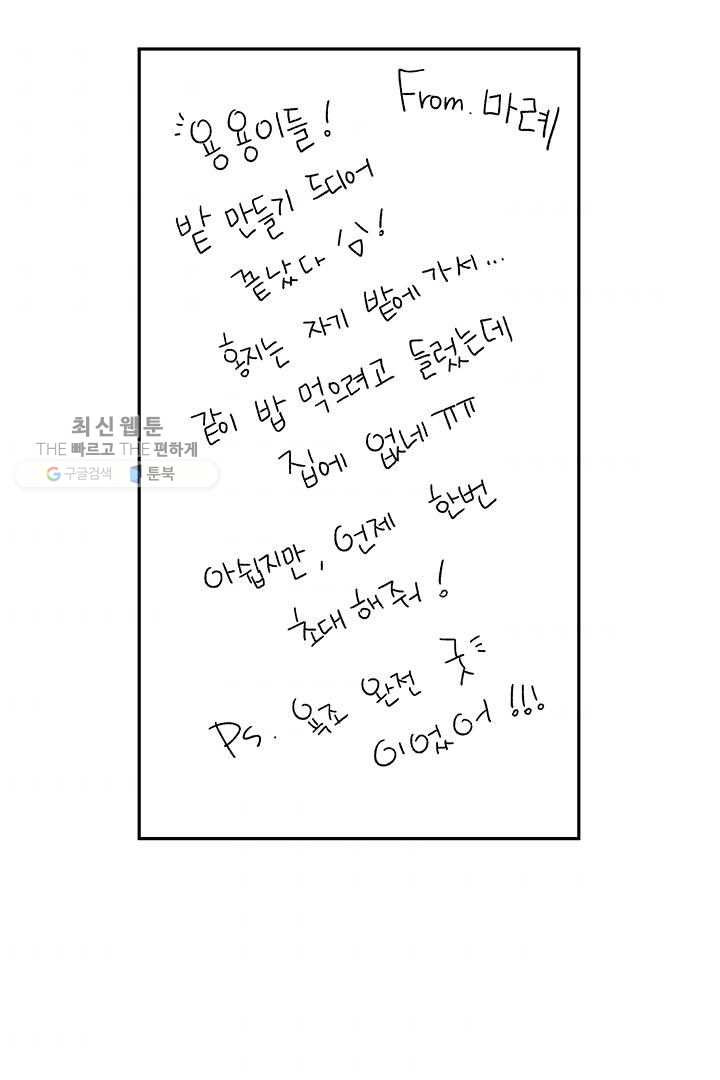 From. 마례
용용이들!
밭 만들기 드디어
끝났다 '심'!
홍지는 자기 밭에 가서...
같이 밥 먹으려고 들렀는데
집에 없네ㅠㅠ
아쉽지만, 언제 한번
초대해줘!
Ps. 욕조 완전 굿
이었어!!!
최신웹툰
THE 빠르고 THE 편하게
구글검색 툰북